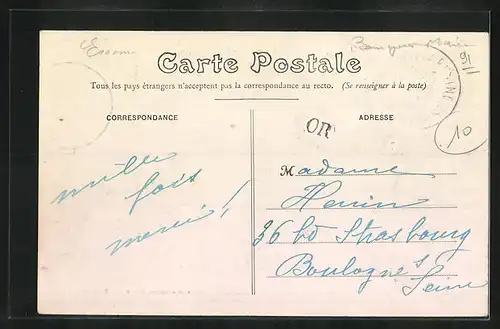 Essonne
Carte Postale
Tous les pays étrangers n'acceptent pas la correspondance au recto. (Se renseigner à la poste)
CORRESPONDANCE
ADRESSE
OR
10
mille
fois
merci !
Madame
Henin
36 bd Strasbourg
Boulogne s
Seine